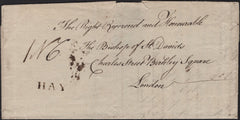 The Right Reverend and Honourable
The Bishop of St Davids
Charles Street Berkley Square
London
HAY